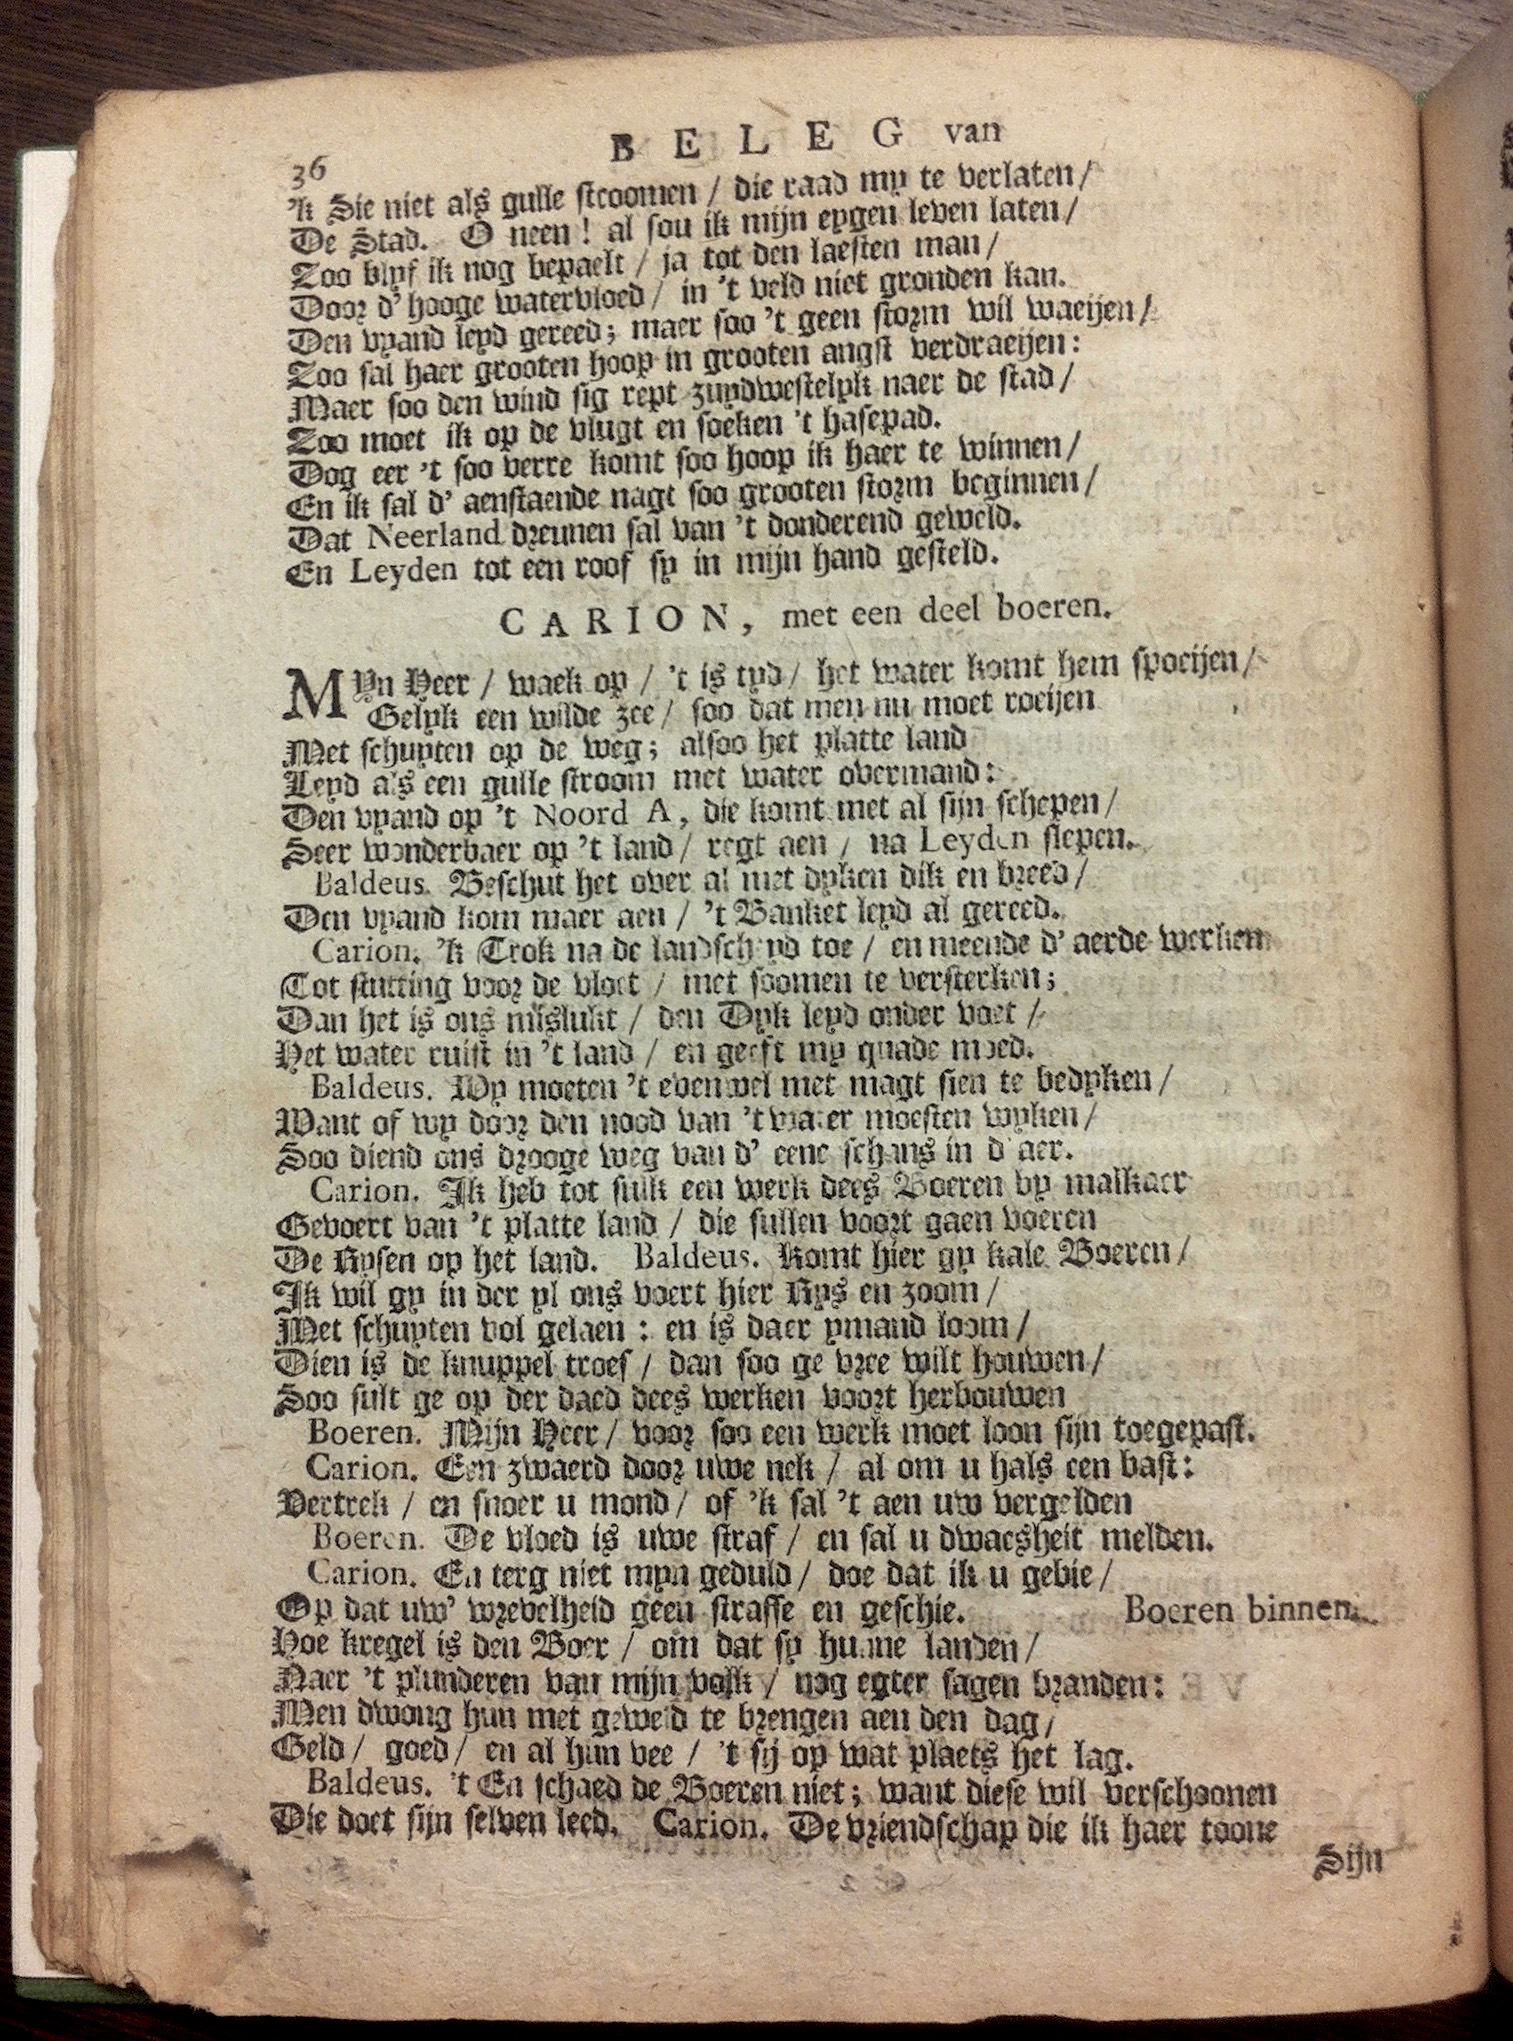 36
BELEG van
'k Sie niet als gulle stroomen / die raad my te verlaten /
De Stad. O neen! al sou ik mijn eygen leven laten /
Zoo blyf ik nog bepaelt / ja tot den laesten man /
Door d' hooge watervloed / in 't veld niet gronden kan.
Den vyand leyd gereed; maer soo 't geen storm wil waeijen /
Zoo sal haer grooten hoop in grooten angst verdraeijen:
Maer soo den wind sig rept zuydwestelyk naer de stad /
Zoo moet ik op de vlugt en soeken 't hasepad.
Dog eer 't soo verre komt soo hoop ik haer te winnen /
En ik sal d' aenstaende nagt soo grooten storm beginnen /
Dat Neerland dreunen sal van 't donderend geweld.
En Leyden tot een roof sy in mijn hand gesteld.
CARION, met een deel boeren.
MYn Heer / waek op / 't is tyd / het water komt hem spoeijen /
Gelyk een wilde zee / soo dat men nu moet roeijen
Met schuyten op de weg; alsoo het platte land
Leyd als een gulle stroom met water overmand:
Den vyand op 't Noord A, die komt met al sijn schepen /
Seer wonderbaer op 't land / regt aen / na Leyden slepen.
Baldeus. Beschut het over al met dyken dik en breed /
Den vyand kom maer aen / 't Banket leyd al gereed.
Carion. 'k Trok na de landscheyd toe / en meende d' aerde werken
Tot stutting voor de vloet / met soomen te versterken;
Dan het is ons mislukt / den Dyk leyd onder voet /
Het water ruist in 't land / en geeft my quade moed.
Baldeus. Wy moeten 't evenwel met magt sien te bedyken /
Want of wy door den nood van 't water moesten wyken /
Soo diend ons drooge weg van d' eene schans in d' aer.
Carion. Ik heb tot sulk een werk dees Boeren by malkaer
Gevoert van 't platte land / die sullen voort gaen voeren
De Rysen op het land. Baldeus. Komt hier gy kale Boeren /
Ik wil gy in der yl ons voert hier Rys en zoom /
Met schuyten vol gelaen: en is daer ymand loom /
Dien is de knuppel troef / dan soo ge vree wilt houwen /
Soo sult ge op der daed dees werken voort herbouwen
Boeren. Mijn Heer / voor soo een werk moet loon sijn toegepast.
Carion. Een zwaerd door uwe nek / al om u hals een bast:
Vertrek / en snoer u mond / of 'k sal 't aen uw vergelden
Boeren. De vloed is uwe straf / en sal u dwaesheit melden.
Carion. En terg niet myn geduld / doe dat ik u gebie /
Op dat uw' wrevelheid geen straffe en geschie. Boeren binnen.
Hoe kregel is den Boer / om dat sy hunne landen /
Naer 't plunderen van mijn volk / nog egter sagen branden:
Men dwong hun met geweld te brengen aen den dag /
Geld / goed / en al hun vee / 't sij op wat plaets het lag.
Baldeus. 't En schaed de Boeren niet; want diese wil verschoonen
Die doet sijn selven leed. Carion. De vriendschap die ik haer toone
Sijn